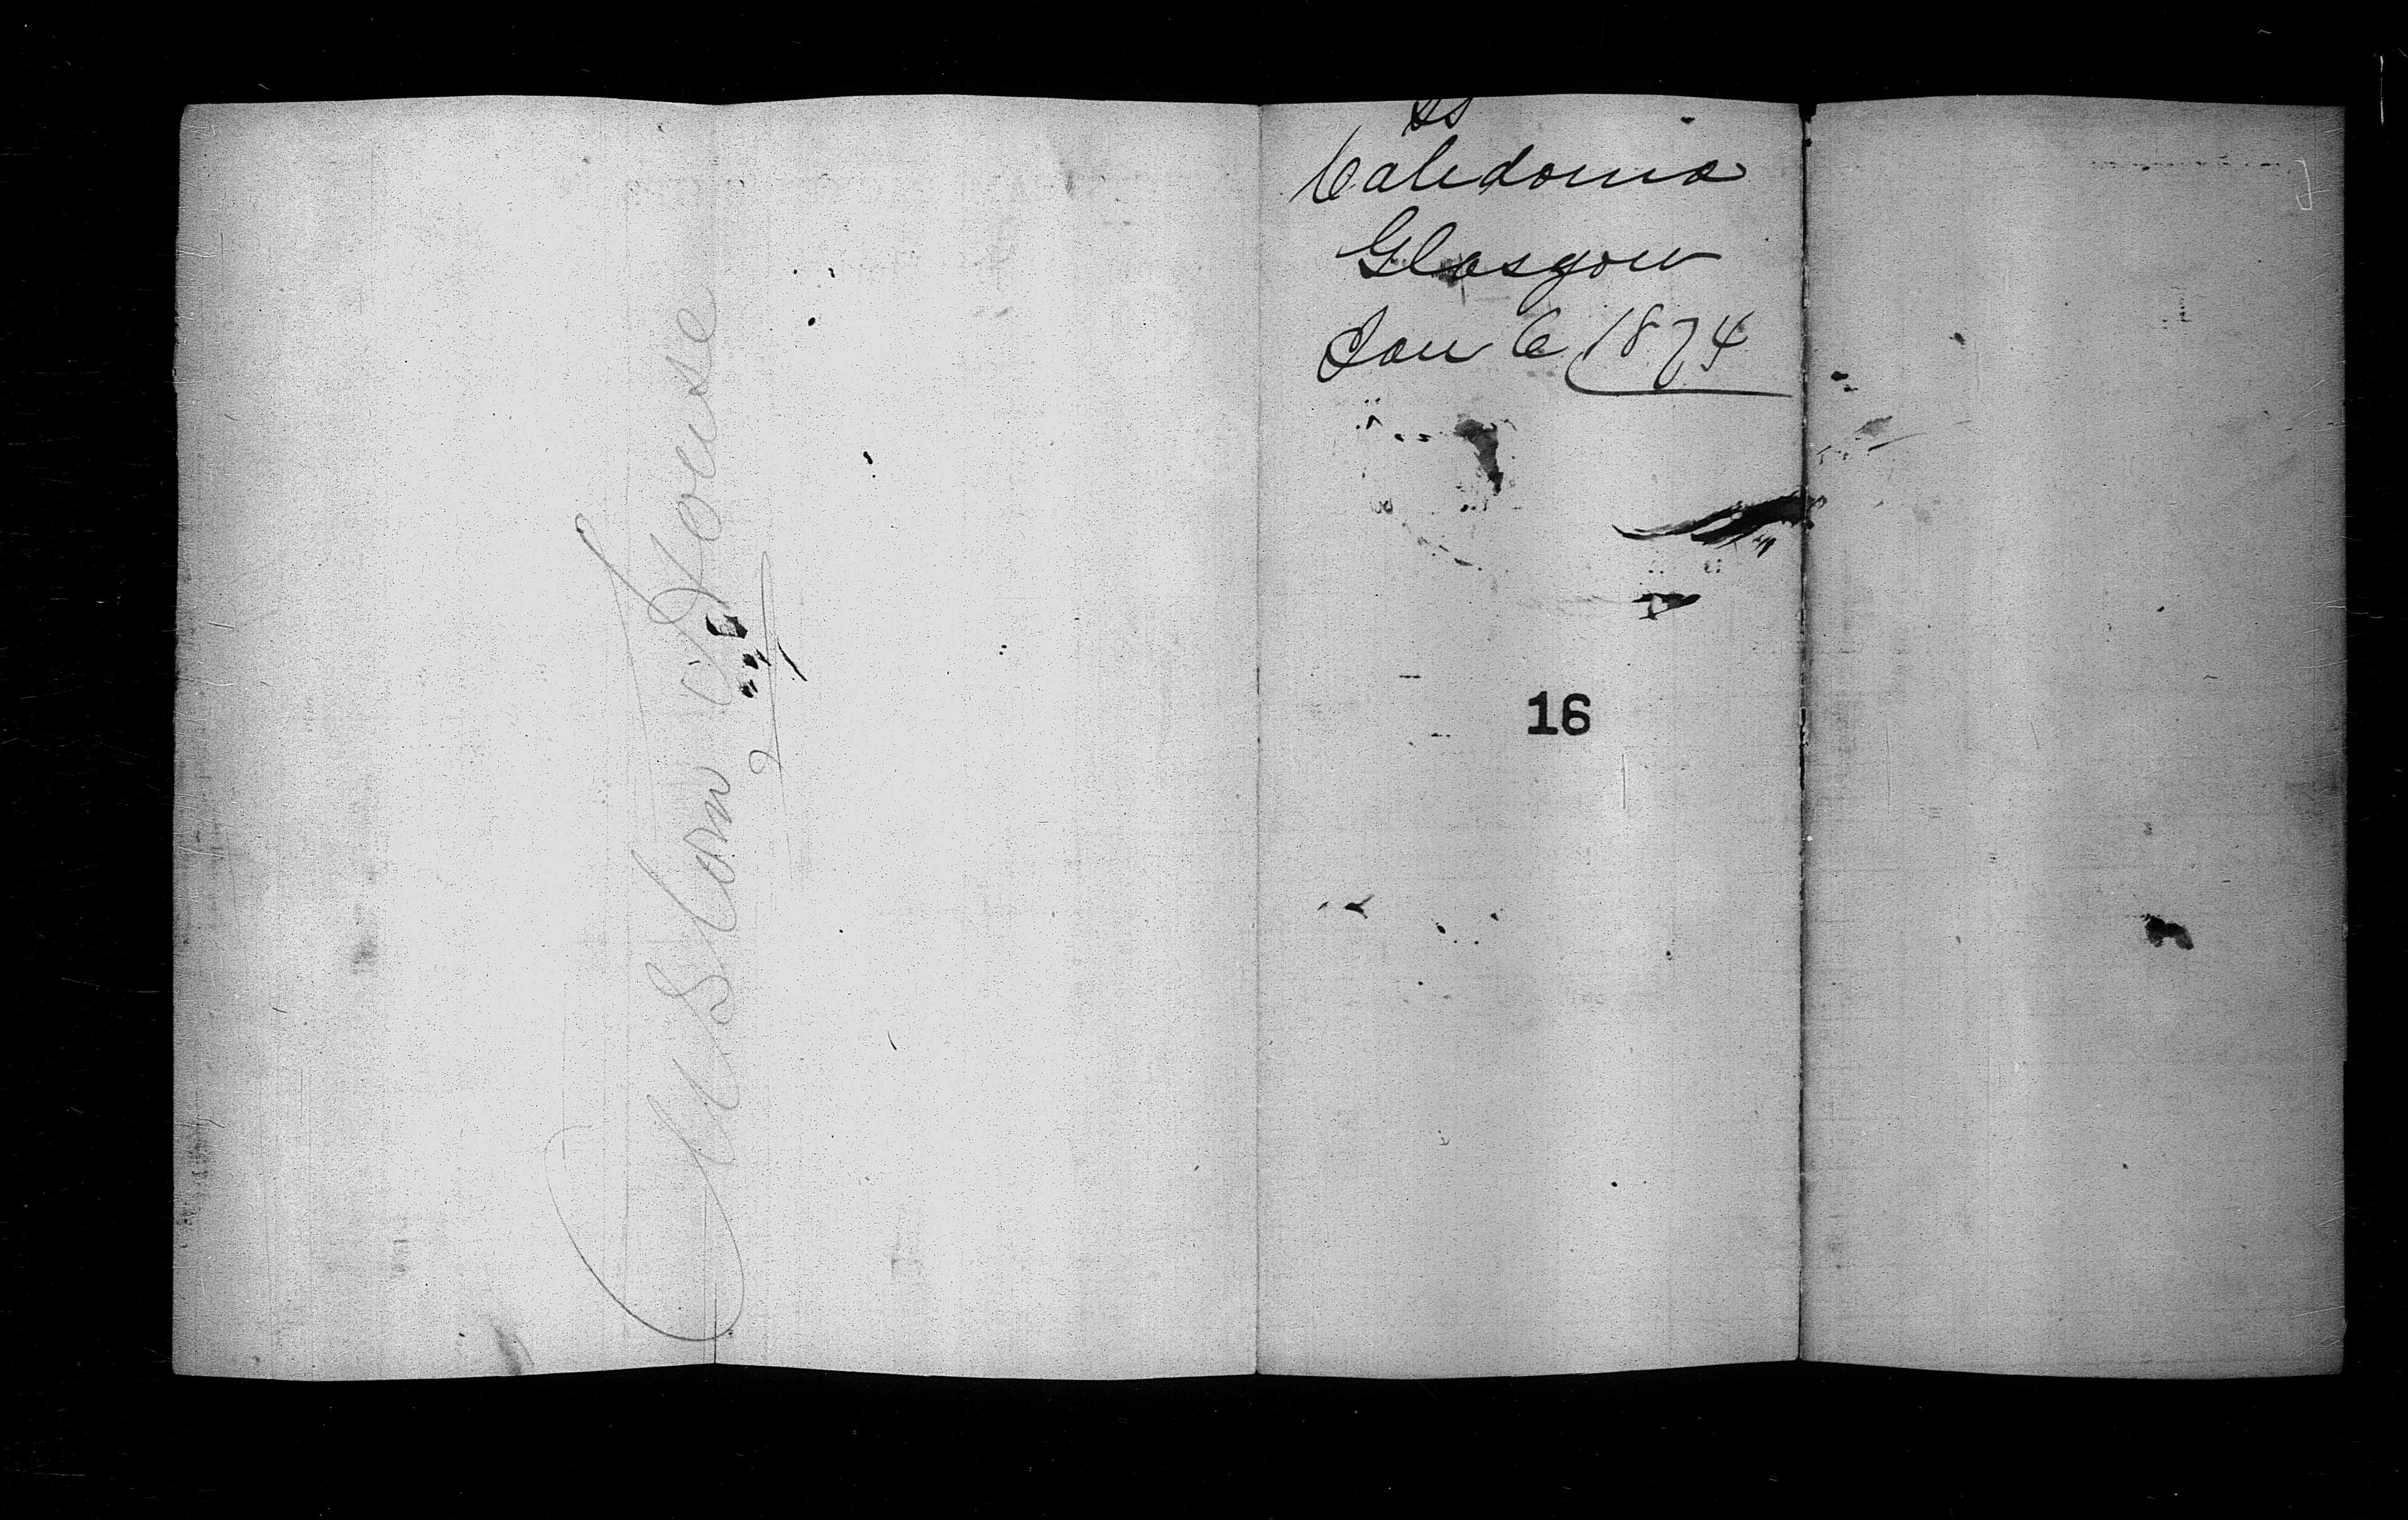 SS
Caledonia
Glasgow
Jan 6 1874
16
Custom House